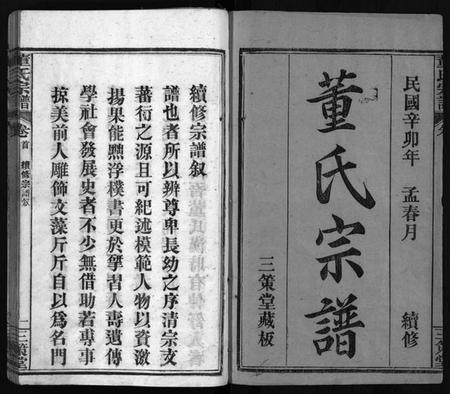 董氏宗譜
民國辛卯年 孟春月 續修
董氏宗譜
三策堂藏板
續修宗譜叙
譜也者所以辨尊卑長幼之序清宗支
蕃衍之源且可紀述模範人物以資激
揚果能黜浮樸書更於肇習人壽遺傳
學社會發展史者不少無借助若專事
掠美前人雕飾文藻斤斤自以爲名門
董氏宗譜 卷首 續修宗譜叙 一 三策堂